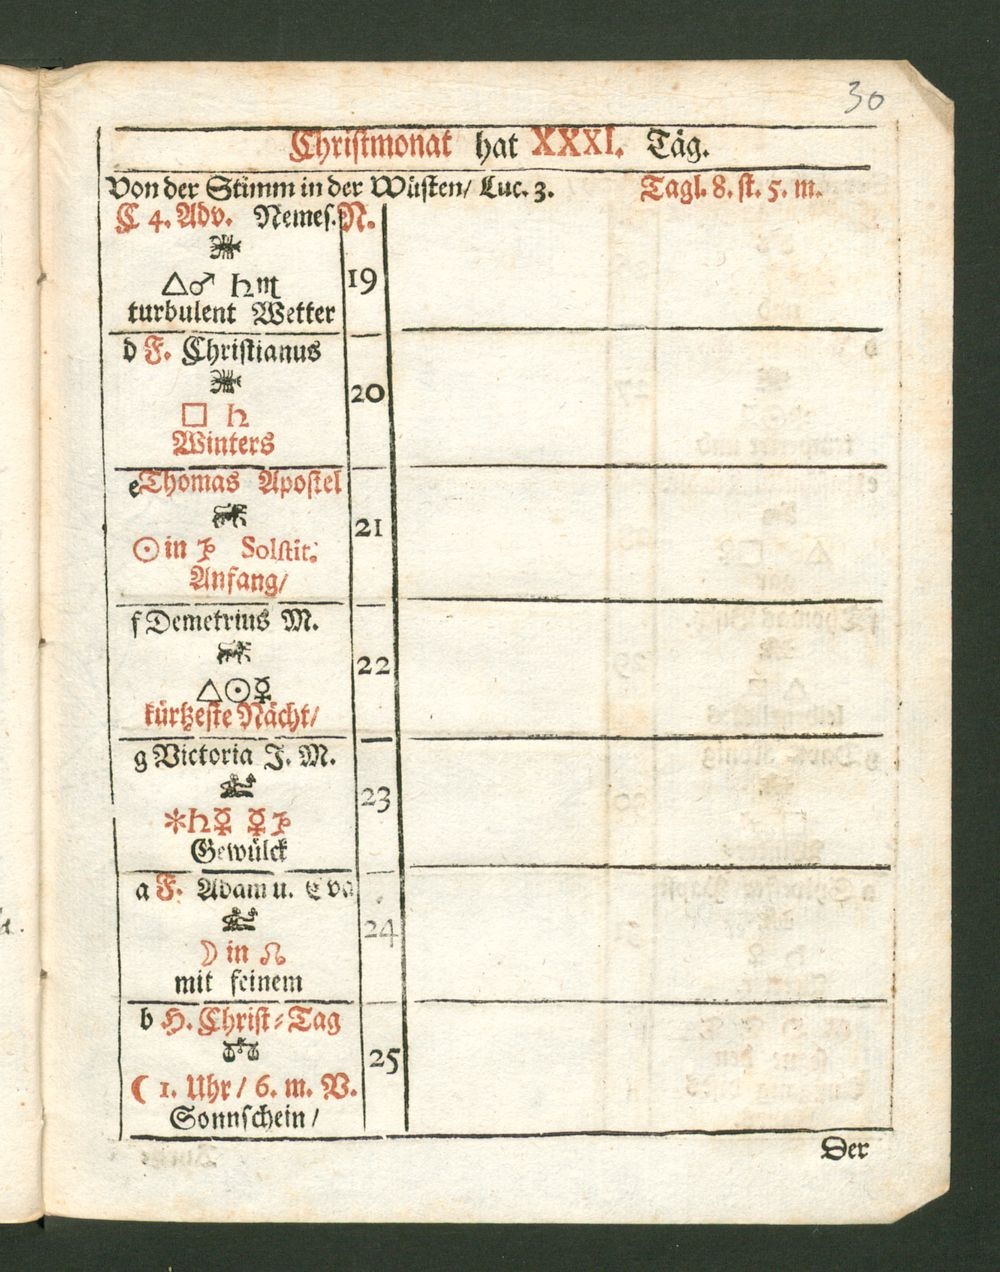 30
Christmonat hat XXXI. Täg.
Von der Stimm in der Wüsten/ Luc. 3. Tagl. 8. st. 5. m.
C 4. Adv. Nemes. N.
△♂ ♄♏ 19
turbulent Wetter
d F. Christianus
20
□ ♄
Winters
e Thomas Apostel
21
☉ in ♑ Solstit.
Anfang/
f Demetrius M.
22
△☉☿
kürtzeste Nächt/
g Victoria J. M.
23
✱♄☿ ☿♑
Gewülck
a F. Adam u. Eva
24
☽ in ☊
mit feinem
b H. Christ-Tag
25
☾ 1. Uhr/ 6. m. V.
Sonnschein/
Der